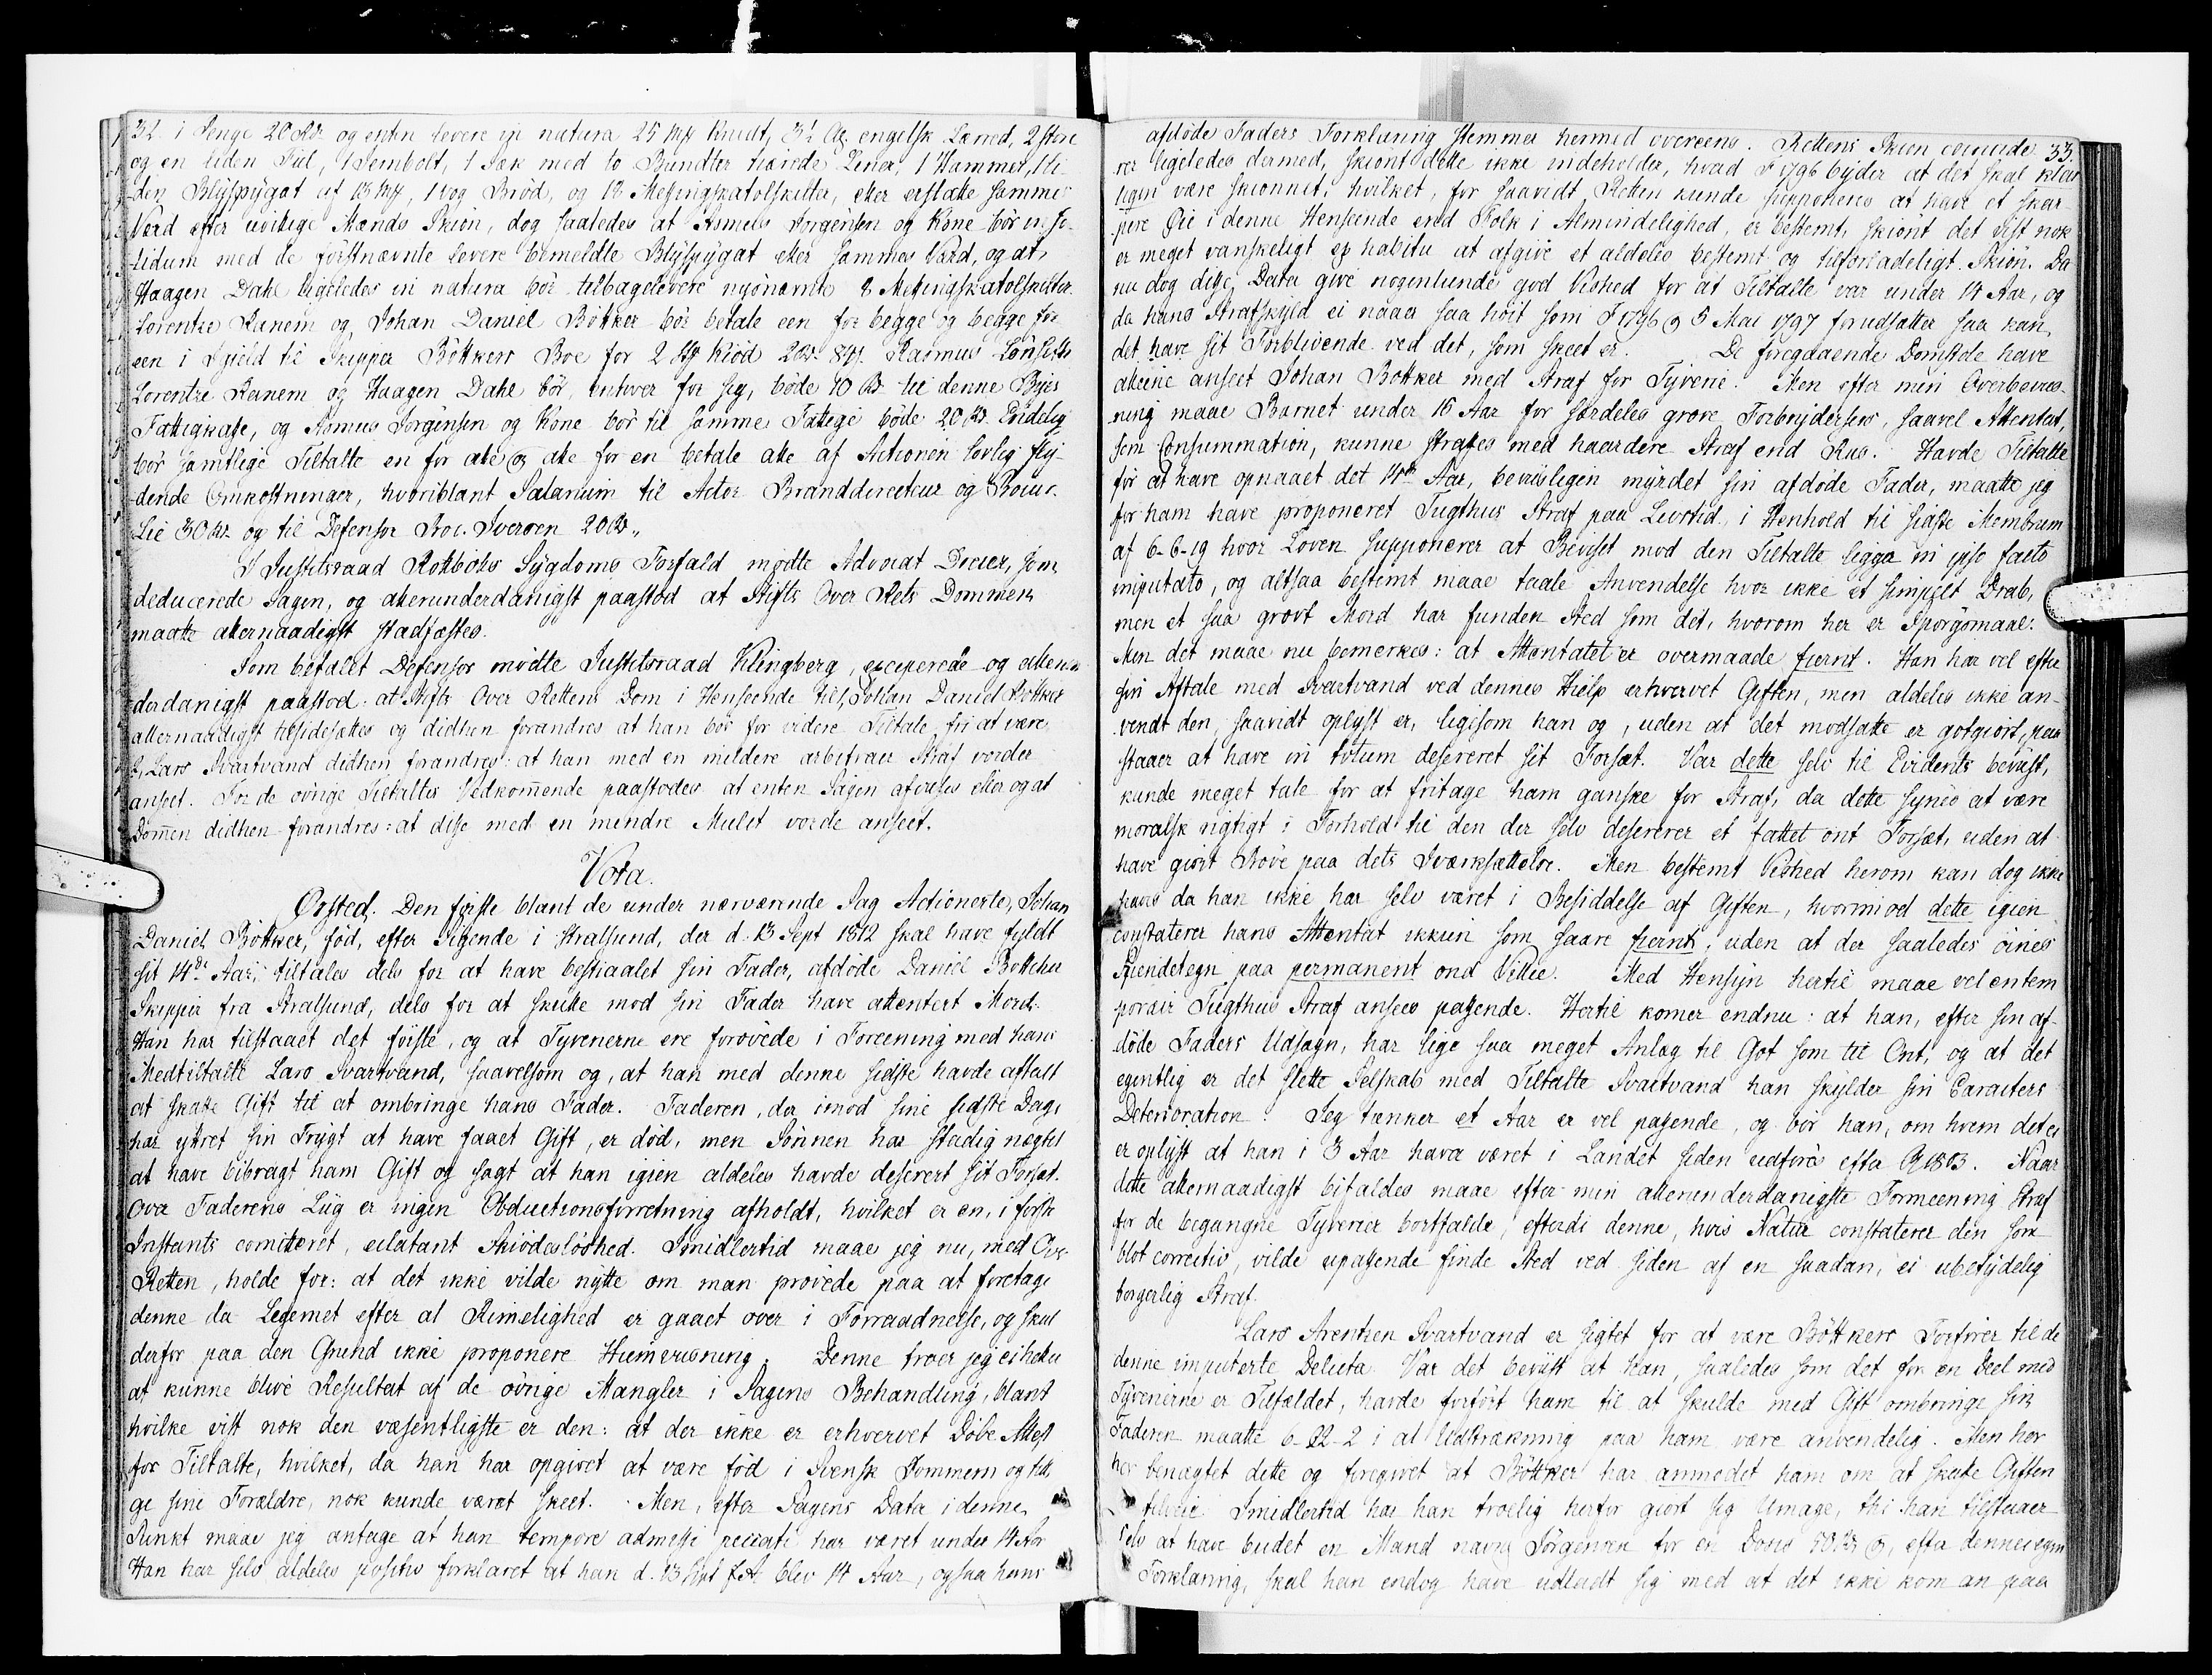 32. i Penge 20 Rd. og enten levere in natura 25 Mrk Knudt, 3½ Al. engelsk Lærred, 2 store
og en liden Fiil, 1 Sembolt, 1 Sæk med to Bundter tiærede Liner, 1 Hammer, 1 li-
den Blyspygat af 13 Mrk, 1 Vog Brød, og 12 Messingskatolskilter, eller erstatte sammes
Værd efter uvillige Mænds Skiøn, dog saaledes at Asmus Jørgensen og Kone bør in so-
lidum med de førstnævnte levere bemeldte Blyspygat eller sammes Værd, og at
Haagen Dahl ligeledes in natura bør tilbagelevere nysnævnte 8 Messingskatolskilter.
Lorentze Ranem og Johan Daniel Bøttker bør betale een for begge og begge for
een i Skield til Skipper Bøttkers Boe for 2 Kiød 2 Rd. 8 s. Rasmus Lønseth
Lorentze Ranem og Haagen Dahl bør, enhver for sig, bøde 10 Rd. til denne Byes
Fattigkasse, og Asmus Jørgensen og Kone bør til samme Fattige bøde 20 Rd. Endelig
bør samtlige Tiltalte en for alle og alle for en betale alle af Actionen lovlig fly-
dende Omkostninger, hvoriblant Salarium til Actor Branddirecteur og Procur.
Lie 30 Rd. og til Defensor Proc. Iversen 20 Rd.,,
I Justitsraad Rottbølls Sygdoms Forfald mødte Advocat Dreier, som
deducerede Sagen, og allerunderdanigst paastod at Stifts Over Rets Dommen
maatte allernaadigst stadfæstes.
Som befalet Defensor mødte Justitsraad Klingberg, exciperede og allerun-
derdanigst paastod: at Stifts Over Rettens Dom i Henseende til 1, Johan Daniel Bøttker
allernaadigst tilsidesættes og didhen forandres at han bør for videre Tiltale fri at være
2, Lars Svartvand didhen forandres: at han med en mildere arbitrair Straf vorder
anseet. For de øvrige Tiltaltes Vedkommende paastodes at enten Sagen afvises eller og at
Dommen didhen forandres: at disse med en mindre Mulct vorde anseet.
Vota.
Ørsted. Den første blant de under nærværende Sag Actionerte, Johan
Daniel Bøttker, fød, efter Sigende i Stralsund, der d. 13 Sept 1812 skal have fyldt
sit 14de Aar, tiltales dels for at have bestiaalet sin Fader, afdøde Daniel Bøttcher
Skipper fra Stralsund, dels for at skulle mod sin Fader have attentert Mord.
Han har tilstaaet det første, og at Tyverierne ere forøvede i Foreening med hans
Medtiltalte Lars Svartvand, saavelsom og, at han med denne sidste havde aftalt
at skaffe Gift til at ombringe hans Fader. Faderen, der imod sine sidste Dage
har yttret sin Frygt at have faaet Gift, er død, men Sønnen har stadig nægtet
at have bibragt ham Gift og sagt at han igien aldeles havde desereret sit Forsæt.
Over Faderens Liig er ingen Obductionsforretning afholdt, hvilket er en, i første
Instants comitteret, eclatant Skiødesløshed. Imidlertid maae jeg nu, med Over
Retten, holde for: at det ikke vilde nytte om man prøvede paa at foretage
denne da Legemet efter al Rimelighed er gaaet over i Forraadnelse, og skal
derfor paa den Grund ikke proponere Hiemviisning. Denne troer jeg ei heller
at kunne blive Resultat af de øvrige Mangler i Sagens Behandling, blant
hvilke vist nok den væsentligste er den: at der ikke er erhvervet Døbe Attest
for Tiltalte, hvilket, da han har opgivet at være fød i Svensk Pommern og tilli-
ge sine Forældre, nok kunde været skeet. Men, efter Sagens Data i denne
Punkt maae jeg antage at han tempore admissi peccati har været under 14 Aar
Han har selv aldeles positiv forklaret at han d. 13 Sept f. A. blev 14 Aar, ogsaa hans
33.
afdøde Faders Forklaring stemmer hermed overeens. Rettens Skiøn conunde-
rer ligeledes dermed, skiønt dette ikke indeholder, hvad F 1796 byder at det skal klar-
ligen være skiønnet, hvilket, for saavidt Retten kunde supponeres at have et skar-
pere Øie i denne Henseende end Folk i Almindelighed, er bestemt, skiønt det vist nok
er meget vanskeligt ex habitu at afgive et aldeles bestemt og tilforladeligt Skiøn. Da
nu dog disse Data give nogenlunde god Vished for at Tiltalte var under 14 Aar, og
da hans Strafskyld ei naaer saa høit som F 1796 og 5 Mai 1797 forudsætter saa kan
det have sit Forblivende ved det, som skeet er. De foregaaende Domstole have
alleene anseet Johan Bøttker med Straf for Tyverie. Men efter min Overbeviis-
ning maae Barnet under 15 Aar for særdeles grove Forbrydelser, saavel Attentat,
som Consummation, kunne straffes med haardere Straf end Riis. Havde Tiltalte
før at have opnaaet det 14de Aar, beviisligen myrdet sin afdøde Fader, maatte jeg
for ham have proponeret Tugthus Straf paa Livstid, i Henhold til sidste Membrum
af 6-6-19 hvor Loven supponerer at Beviset mod den Tiltalte ligga in ipso facto
imputato, og altsaa bestemt maae taale Anvendelse hvor ikke et simpelt Drab,
men et saa grovt Mord har funden Sted som det, hvorom her er Spørgsmaal.
Men det maae nu bemerkes: at Attentatet er overmaade fiernt. Han har vel efter
sin Aftale med Svartvand ved dennes Hielp erhvervet Giften, men aldeles ikke an-
vendt den, saavidt oplyst er, ligesom han og, uden at det modsatte er gotgiort, paa-
staaer at have in totum desereret sit Forsæt. Var dette selv til Evidents beviist,
kunde meget tale for at fritage ham ganske for Straf, da dette synes at være
moralsk rigtigt i Forhold til den der selv desererer et fattet ont Forsæt, uden at
have giort Prøve paa dets Iværksættelse. Men bestemt Vished herom kan dog ikke
haves da han ikke har selv været i Besiddelse af Giften, hvorimod dette igien
constaterer hans Attentat ikkun som saare fiernt, uden at der saaledes øines
Kiendetegn paa permanent ond Villie. Med Hensyn hertil maae vel en tem-
porair Tugthus Straf ansees passende. Hertil komer endnu: at han, efter sin af-
døde Faders Udsagn, har lige saa meget Anlæg til Got som til Ont, og at det
egentlig er det slette Selskab med Tiltalte Svartvand han skylder sin Caracters
Deterioration. Jeg tænker et Aar er vel passende, og bør han, om hvem det ei
er oplyst at han i 3 Aar haver været i Landet siden udføres efter 1803. Naar
dette allernaadigst bifaldes maae efter min allerunderdanigste Formeening Straf
for de begangne Tyverier bortfalde, efterdi denne, hvis Natur constaterer den som
blot correctiv, vilde upassende finde Sted ved Siden af en saadan, ei ubetydelig
borgerlig Straf.
Lars Arentzen Svartvand er sigtet for at være Bøttkers Forfører til de
denne imputerte Delicta. Var det beviist at han, saaledes som det for en Deel med
Tyverierne er Tilfældet, havde forført ham til at skulde med Gift ombringe sin
Faderen maatte 6-22-2 i al Udstrækning paa ham være anvendelig. Men her
har benægtet dette og foregivet at Bøttker har anmodet ham om at skaffe Giften
tilveie. Imidlertid har han troelig herfor giort sig Umage, thi han tilstaaer
selv at have budet en Mand navn Jørgensen for en Dosis 50 Rd. og, efter dennes egen
Forklaring, skal han endog have udladt sig med at det ikke kom an paa